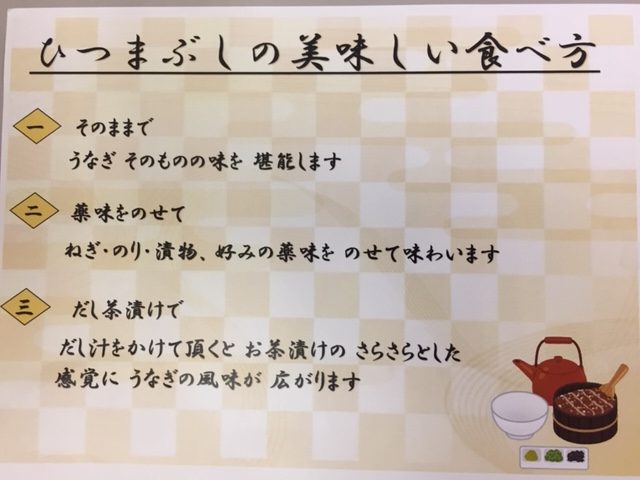 ひつまぶしの美味しい食べ方
一 そのままで
うなぎ そのものの味を 堪能します
二 薬味をのせて
ねぎ・のり・漬物、好みの薬味を のせて味わいます
三 だし茶漬けで
だし汁をかけて頂くと お茶漬けの さらさらとした
感覚に うなぎの風味が 広がります